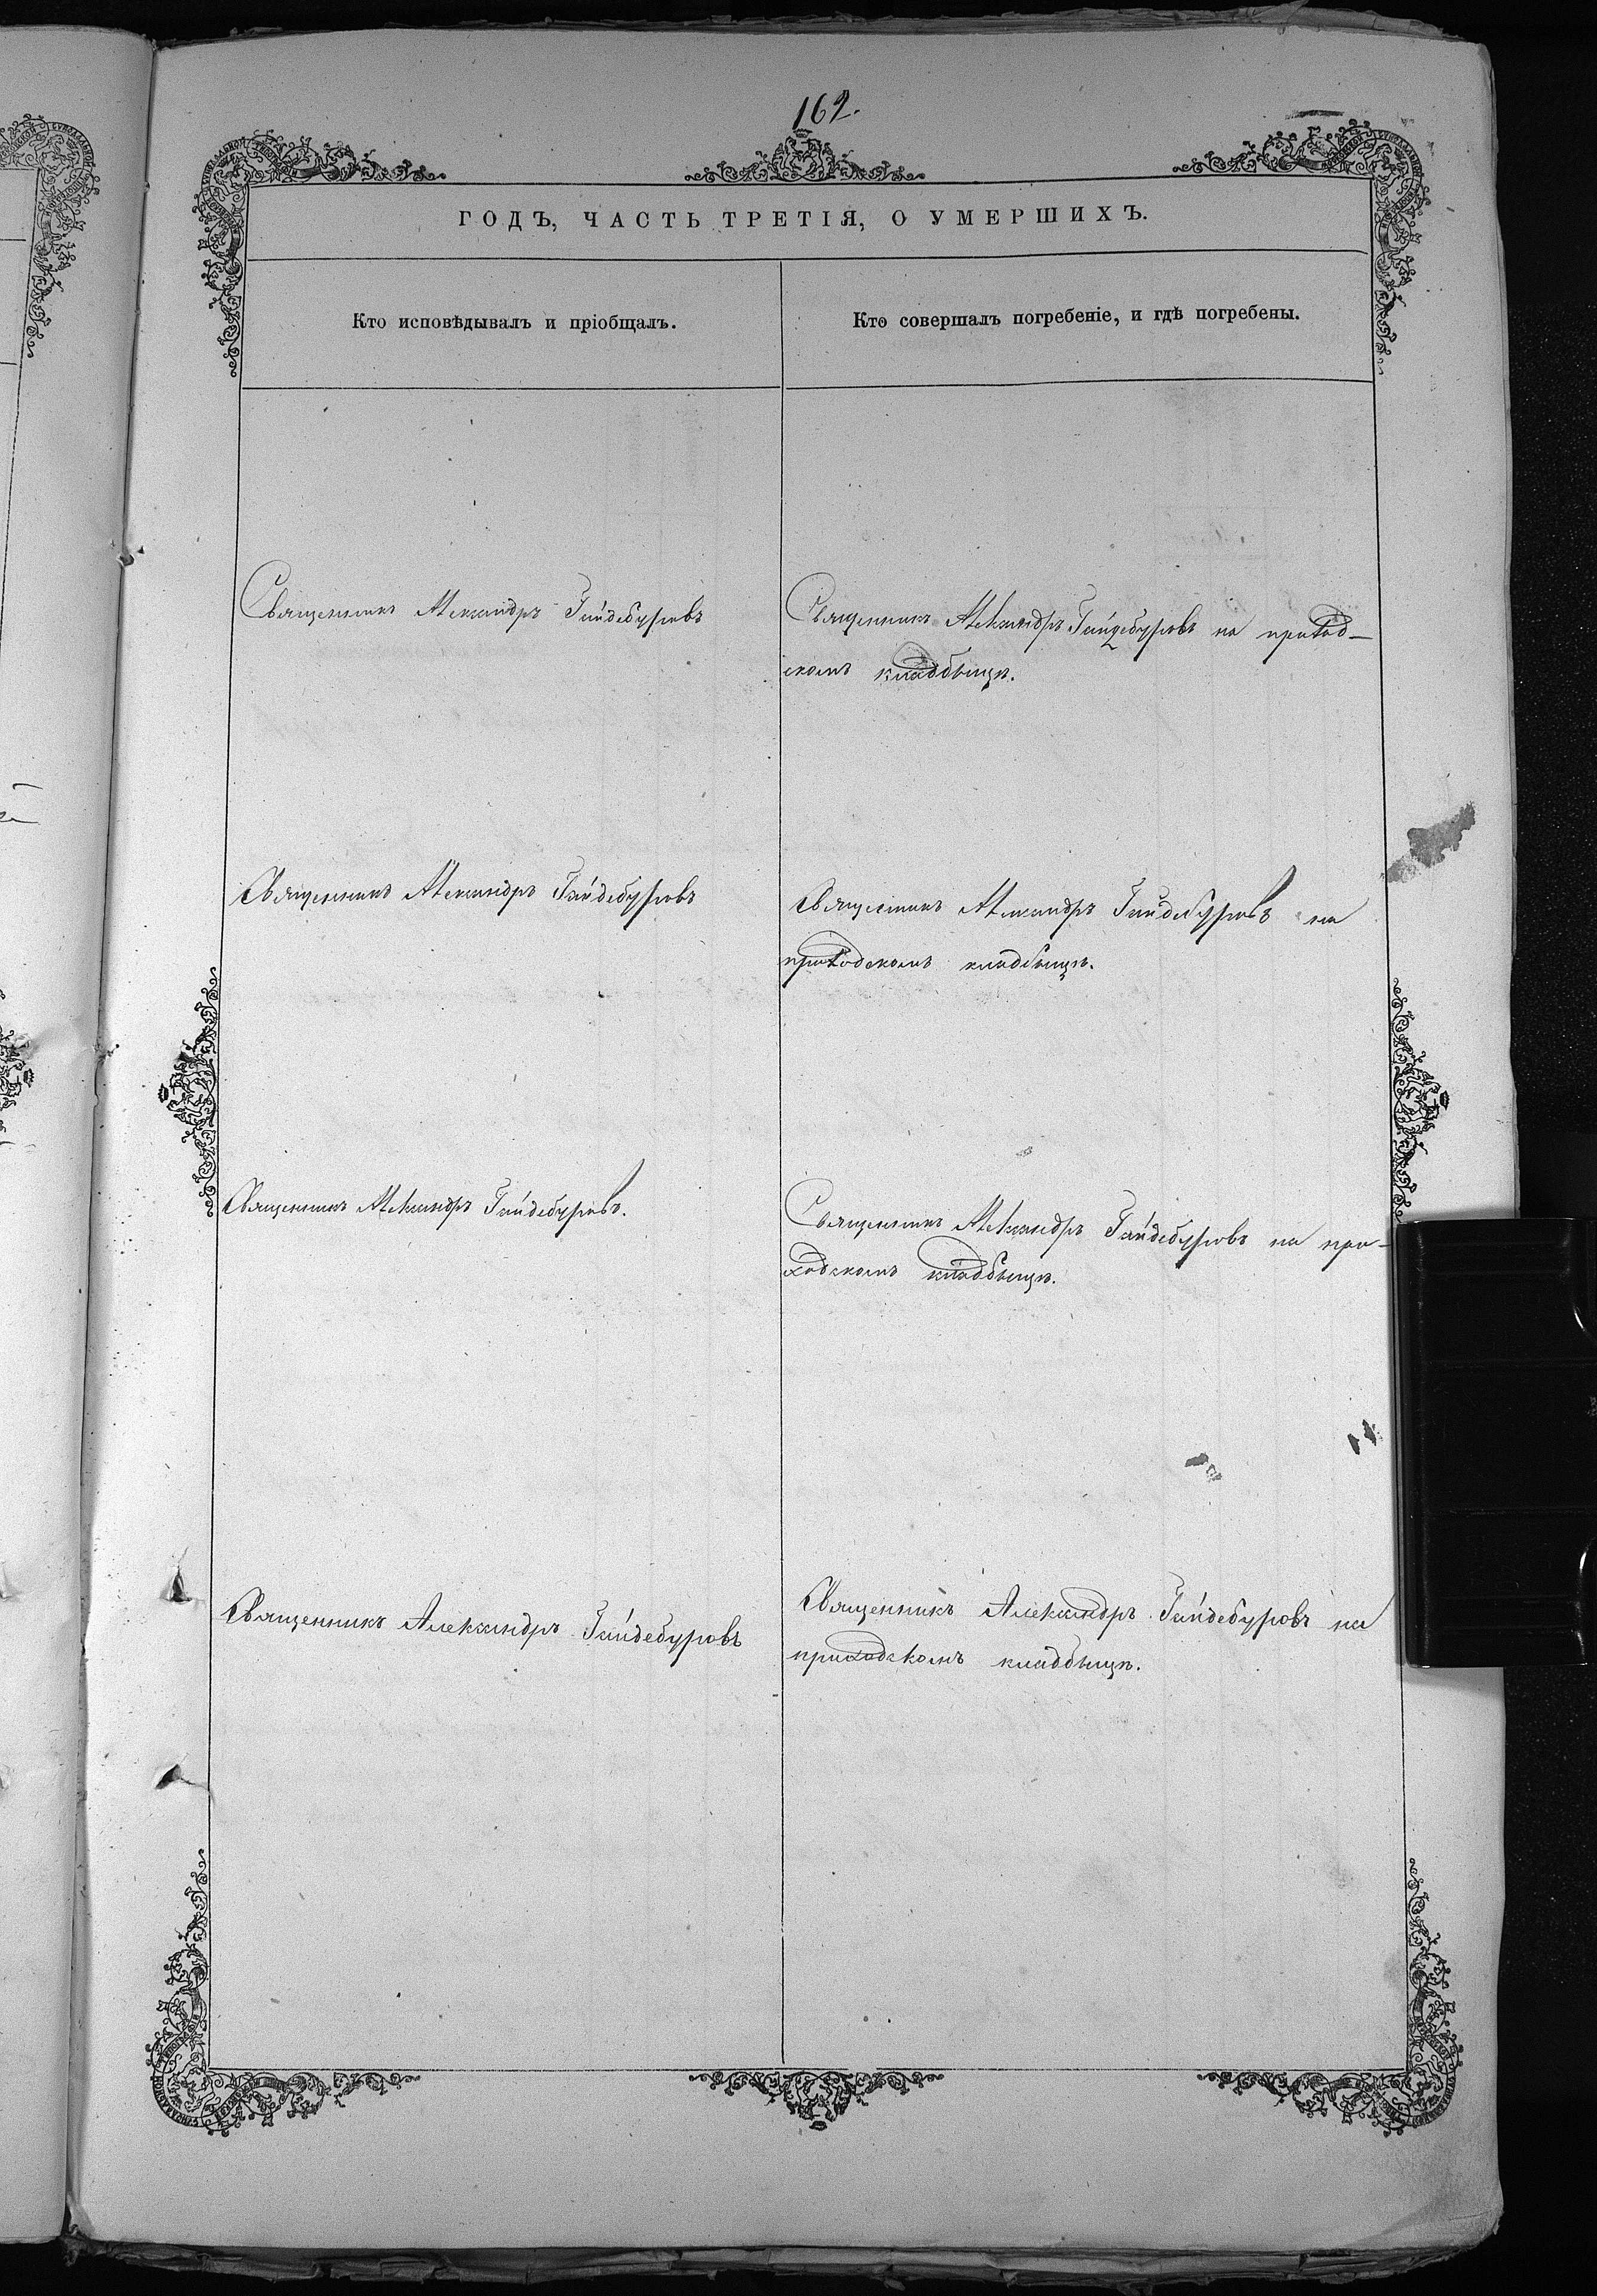 162.
ГОДЪ, ЧАСТЬ ТРЕТІЯ, О УМЕРШИХЪ.
Кто исповѣдывалъ и пріобщалъ.
Кто совершалъ погребеніе, и гдѣ погребены.
Священникъ Александръ Гайдебуровъ
Священникъ Александръ Гайдебуровъ на приход-
скомъ кладбищѣ.
Священникъ Александръ Гайдебуровъ
Священникъ Александръ Гайдебуровъ на
приходскомъ кладбищѣ.
Священникъ Александръ Гайдебуровъ.
Священникъ Александръ Гайдебуровъ на при-
ходскомъ кладбищѣ.
Священникъ Александръ Гайдебуровъ
Священникъ Александръ Гайдебуровъ на
приходскомъ кладбищѣ.